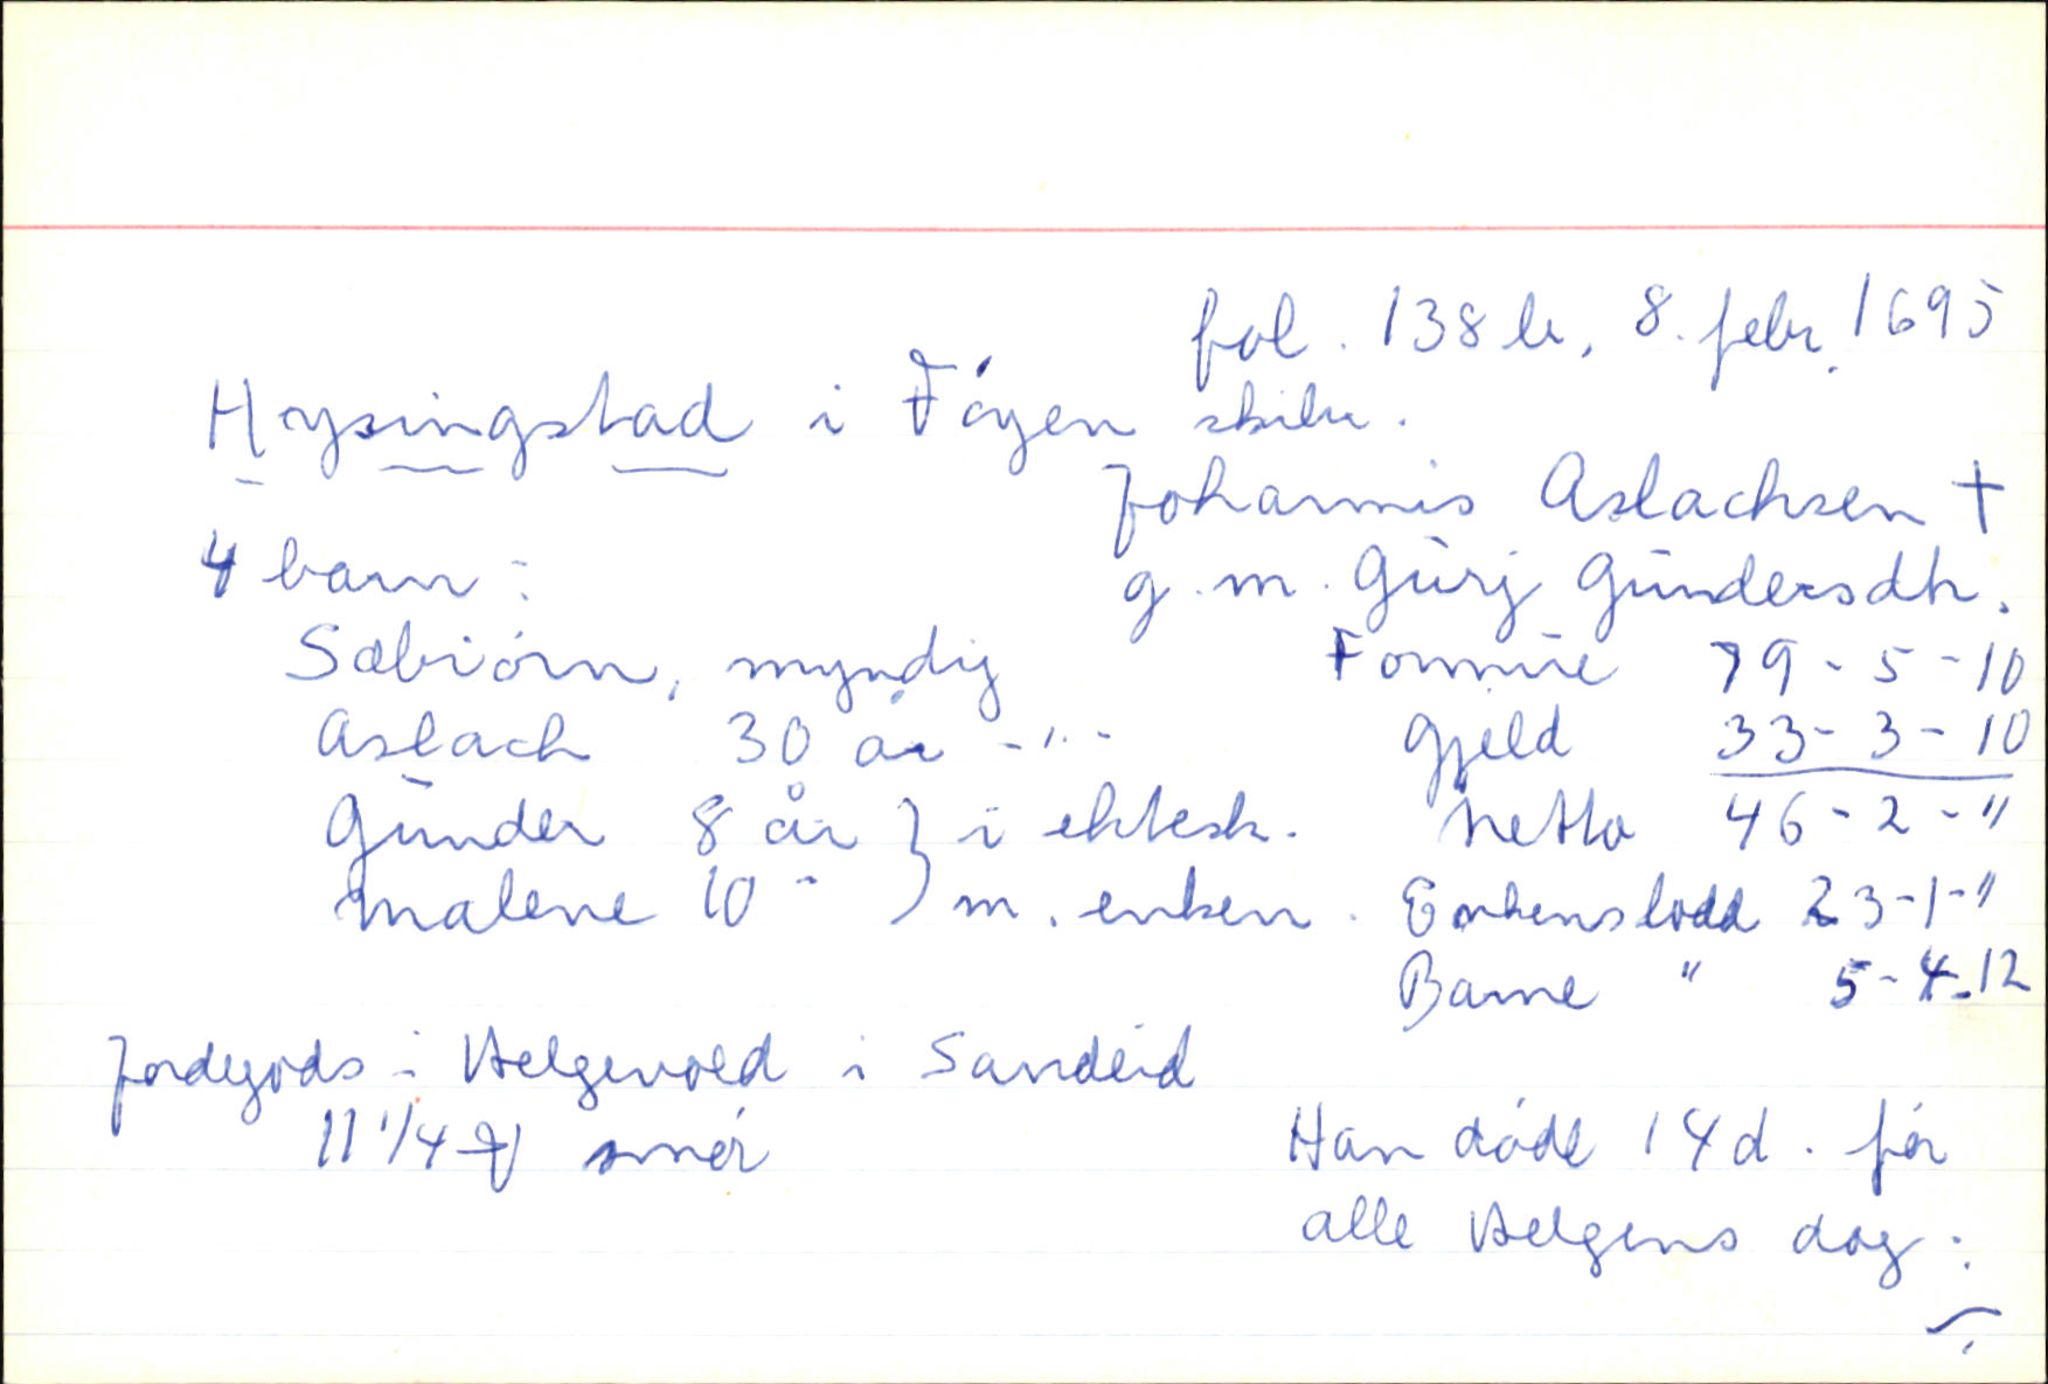 fol. 138 b, 8. febr. 1695
Hysingstad i Føyen skibr.
Johannis Aslachsen †
4 barn: g. m. Gürj Gündersdtr.
Sæbiørn, myndig Formüe 79 - 5 - 10
Aslach 30 år - " - Gjeld 33 - 3 - 10
Günder 8 år } i ektesk. Netto 46 - 2 - "
Malene 10 - } m. enken. Enkens lodd 23 - 1 - "
Barne " 5 - 4 - 12
Jordegods i Helgevold i Sandeid
11 1/4 smør Han døde 14 d. før
alle Helgens dag.